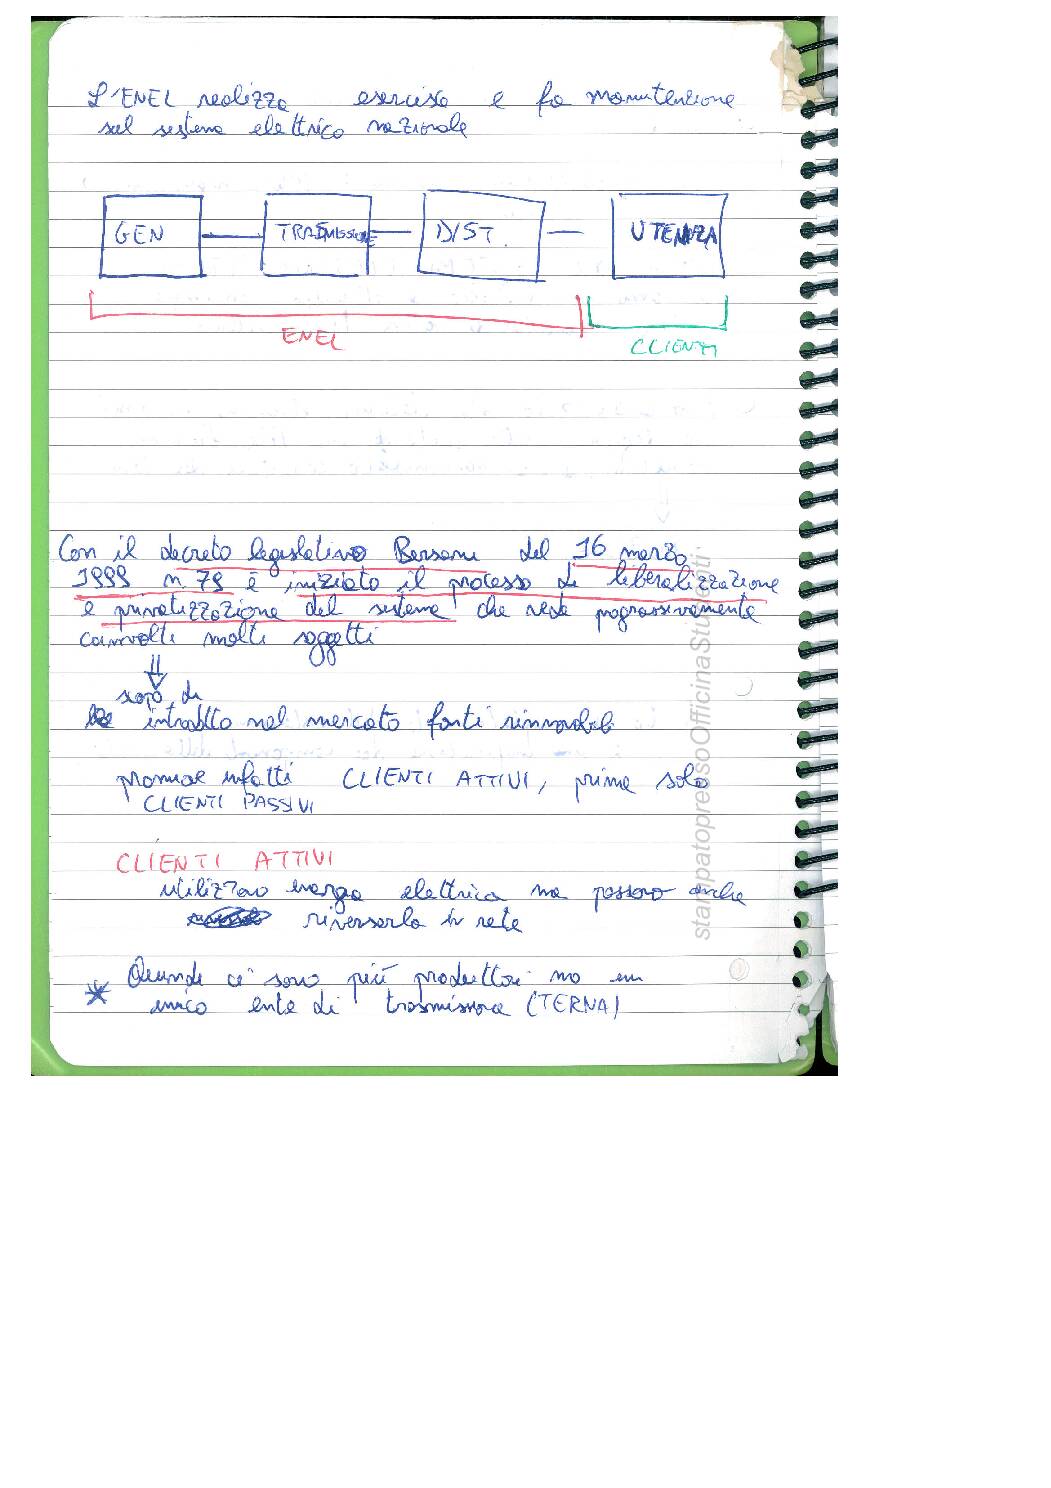 L'ENEL realizza esercisce e fa manutenzione
sul sistema elettrico nazionale
GEN
TRASMISSIONE
DIST.
UTENZA
ENEL
CLIENTI
Con il decreto legislativo Bersani del 16 marzo
1999 n 79 è iniziato il processo di liberalizzazione
e privatizzazione del sistema che vede progressivamente
coinvolti molti soggetti
scopo di
introdotto nel mercato fonti rinnovabili
promuove infatti CLIENTI ATTIVI, prima solo
CLIENTI PASSIVI
CLIENTI ATTIVI
utilizzano energia elettrica ma possono anche
riversarla in rete
* Quindi ci sono più produttori ma un
unico ente di trasmissione (TERNA)
stampatopressoOfficinaStudenti